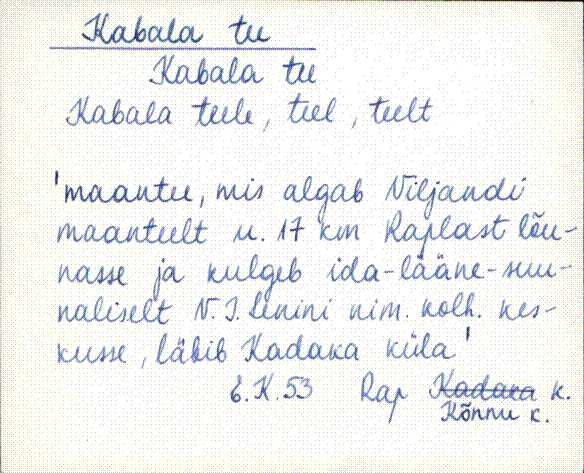 Kabala tee
Kabala tee
Kabala teele, teel, teelt
'maantee, mis algab Viljandi
maanteelt u. 17 km Raplast lõu-
nasse ja kulgeb ida-lääne-suu-
naliselt V. I. Lenini nim. kolh. kes-
kusse, läbib Kadaka küla'
E. K. 53 Rap Kadaka k.
Kõnnu k.